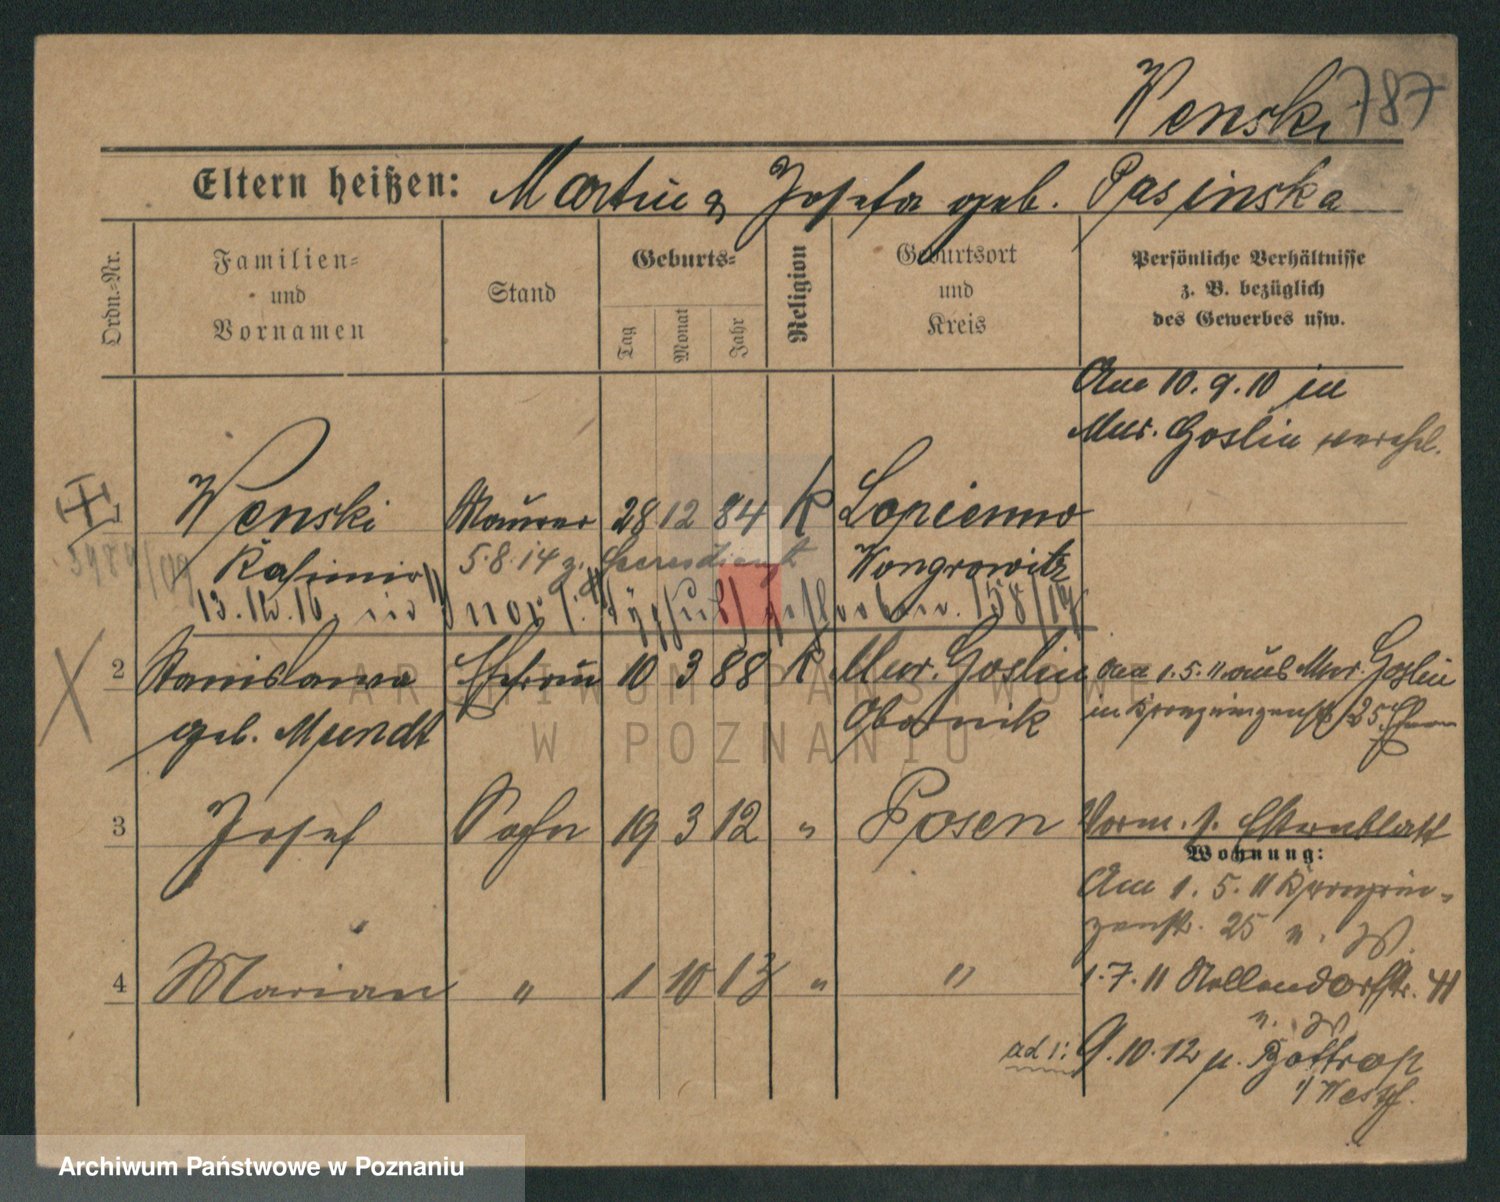 Wenski 787
Eltern heißen: Martin & Josefa geb. Pasinska
Ordn.-Nr.
Familien-
und
Vornamen
Stand
Geburts-
Tag
Monat
Jahr
Religion
Geburtsort
und
Kreis
Persönliche Verhältnisse
z. B. bezüglich
des Gewerbes usw.
Am 10.9.10 in
Mur. Goslin verehel.
Wenski Maurer 28 12 84 K Lopienno
5.8.14 z. Heeresdienst
Kasimir Wongrowitz
13.12.16 158/16
2 Stanislawa Ehefrau 10 3 88 K Mur. Goslin Am 1.5.11 aus Mur. Goslin
geb. Mundt Obornik in Kronprinzenstr. 25
3 Josef Sohn 19 3 12 " Posen Vorm. s. Elternblatt
Wohnung:
Am 1.5.11 Kronprin-
zenstr. 25 n. W.
4 Marian " 1 10 13 " " 1.7.11 Nollendorfstr. 41
n. W
ad 1: 9.10.12 n. Bottrop
i/Westf.
ARCHIWUM PAŃSTWOWE
W POZNANIU
Archiwum Państwowe w Poznaniu